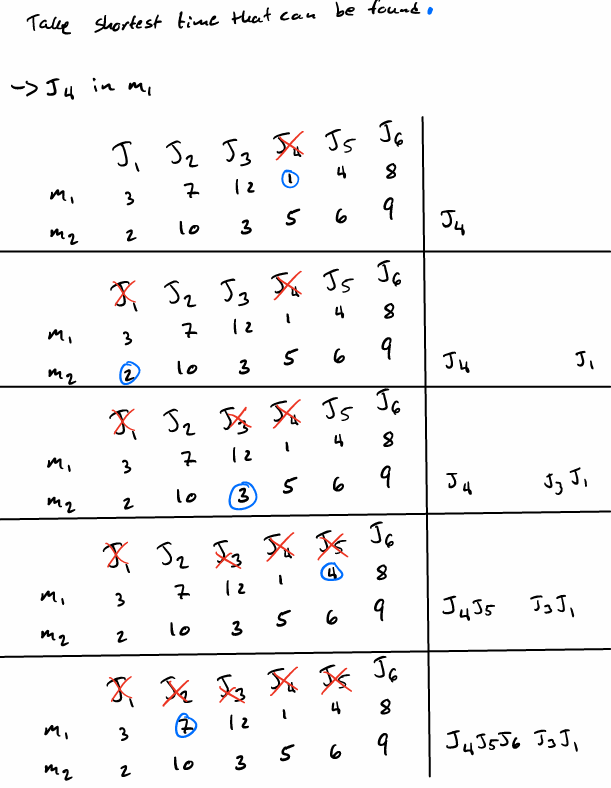 Take shortest time that can be found.
-> J4 in m1
J1 J2 J3 J4 J5 J6
m1 3 7 12 1 4 8
m2 2 10 3 5 6 9 J4
J1 J2 J3 J4 J5 J6
m1 3 7 12 1 4 8
m2 2 10 3 5 6 9 J4 J1
J1 J2 J3 J4 J5 J6
m1 3 7 12 1 4 8
m2 2 10 3 5 6 9 J4 J3 J1
J1 J2 J3 J4 J5 J6
m1 3 7 12 1 4 8
m2 2 10 3 5 6 9 J4 J5 J3 J1
J1 J2 J3 J4 J5 J6
m1 3 7 12 1 4 8
m2 2 10 3 5 6 9 J4 J5 J6 J3 J1